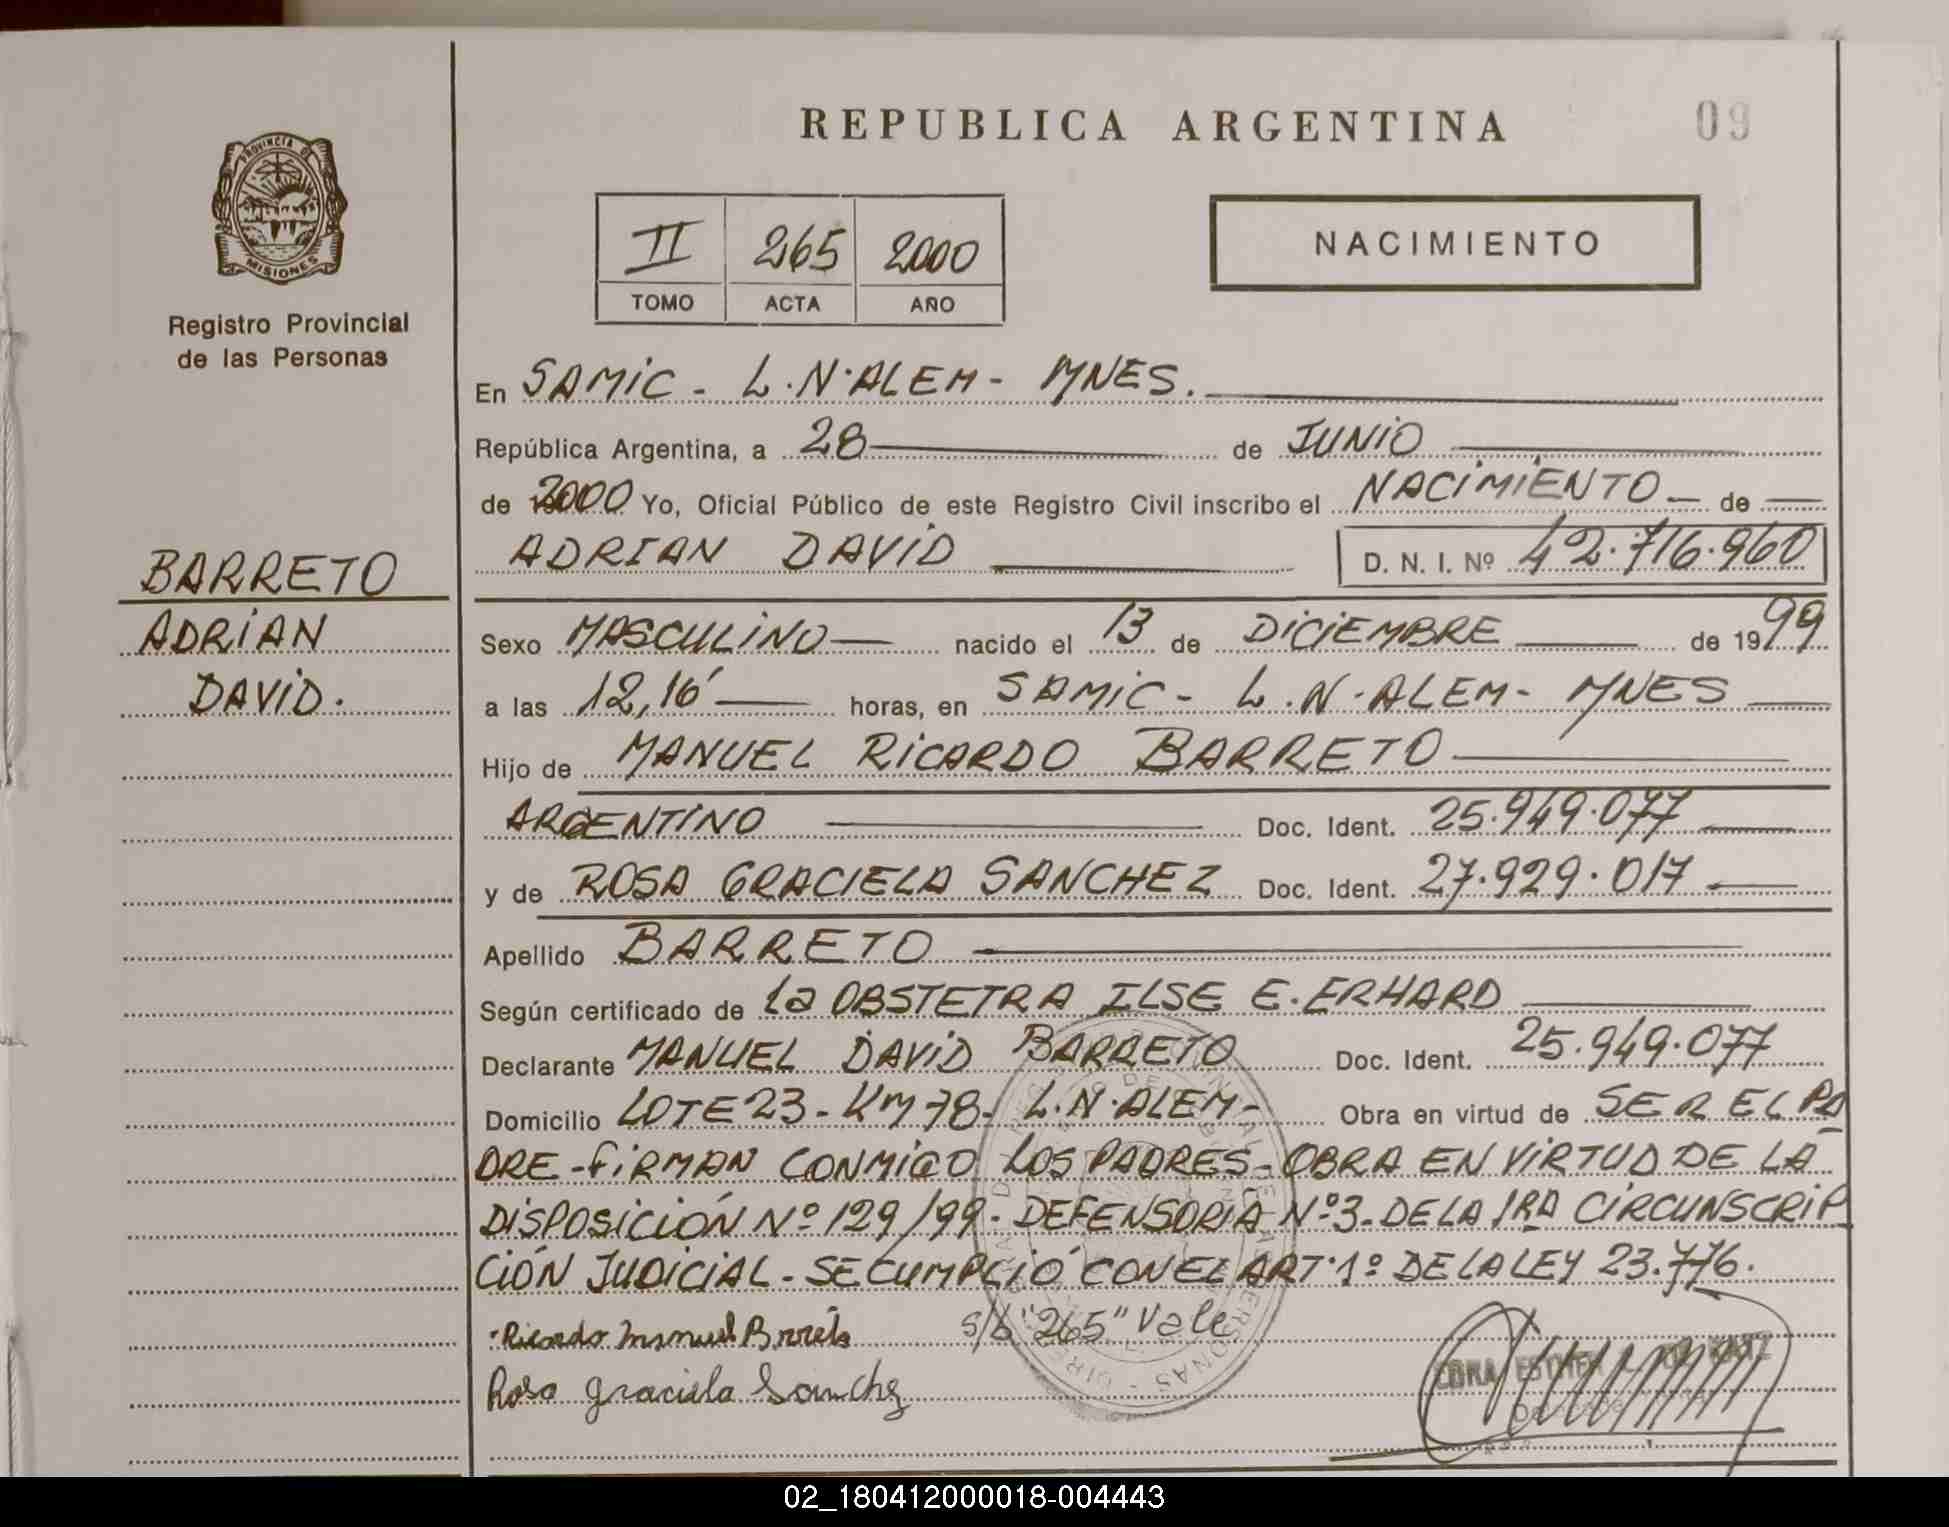 REPUBLICA ARGENTINA
09
PROVINCIA DE
MISIONES
Registro Provincial
de las Personas
II 265 2000
TOMO ACTA AÑO
NACIMIENTO
BARRETO
ADRIAN
DAVID.
En SAMIC - L.N.ALEM - MNES.
República Argentina, a 28 de JUNIO
de 2000 Yo, Oficial Público de este Registro Civil inscribo el NACIMIENTO de
ADRIAN DAVID D. N. I. Nº 42.716.960
Sexo MASCULINO nacido el 13 de DICIEMBRE de 1999
a las 12,16' horas, en SAMIC - L.N.ALEM - MNES
Hijo de MANUEL RICARDO BARRETO
ARGENTINO Doc. Ident. 25.949.077
y de ROSA GRACIELA SANCHEZ Doc. Ident. 27.929.017
Apellido BARRETO
Según certificado de la OBSTETRA ILSE E. ERHARD
Declarante MANUEL DAVID BARRETO Doc. Ident. 25.949.077
Domicilio LOTE 23 - KM 78 - L.N.ALEM - Obra en virtud de SER EL PA
DRE - FIRMAN CONMIGO LOS PADRES - OBRA EN VIRTUD DE LA
DISPOSICIÓN Nº 129/99 - DEFENSORÍA Nº 3 - DE LA 1RA CIRCUNSCRIP
CIÓN JUDICIAL - SE CUMPLIÓ CON EL ART. 1º DE LA LEY 23.776.
Ricardo Manuel Brreto s/b "265" Vale
Rosa Graciela Sanchez
EDNA ESTHER
02_180412000018-004443